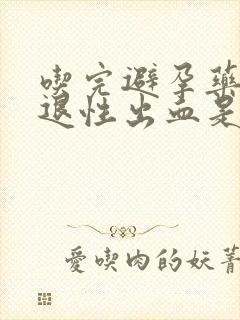 喫完避孕藥
退性出血是
愛喫肉的妖菁